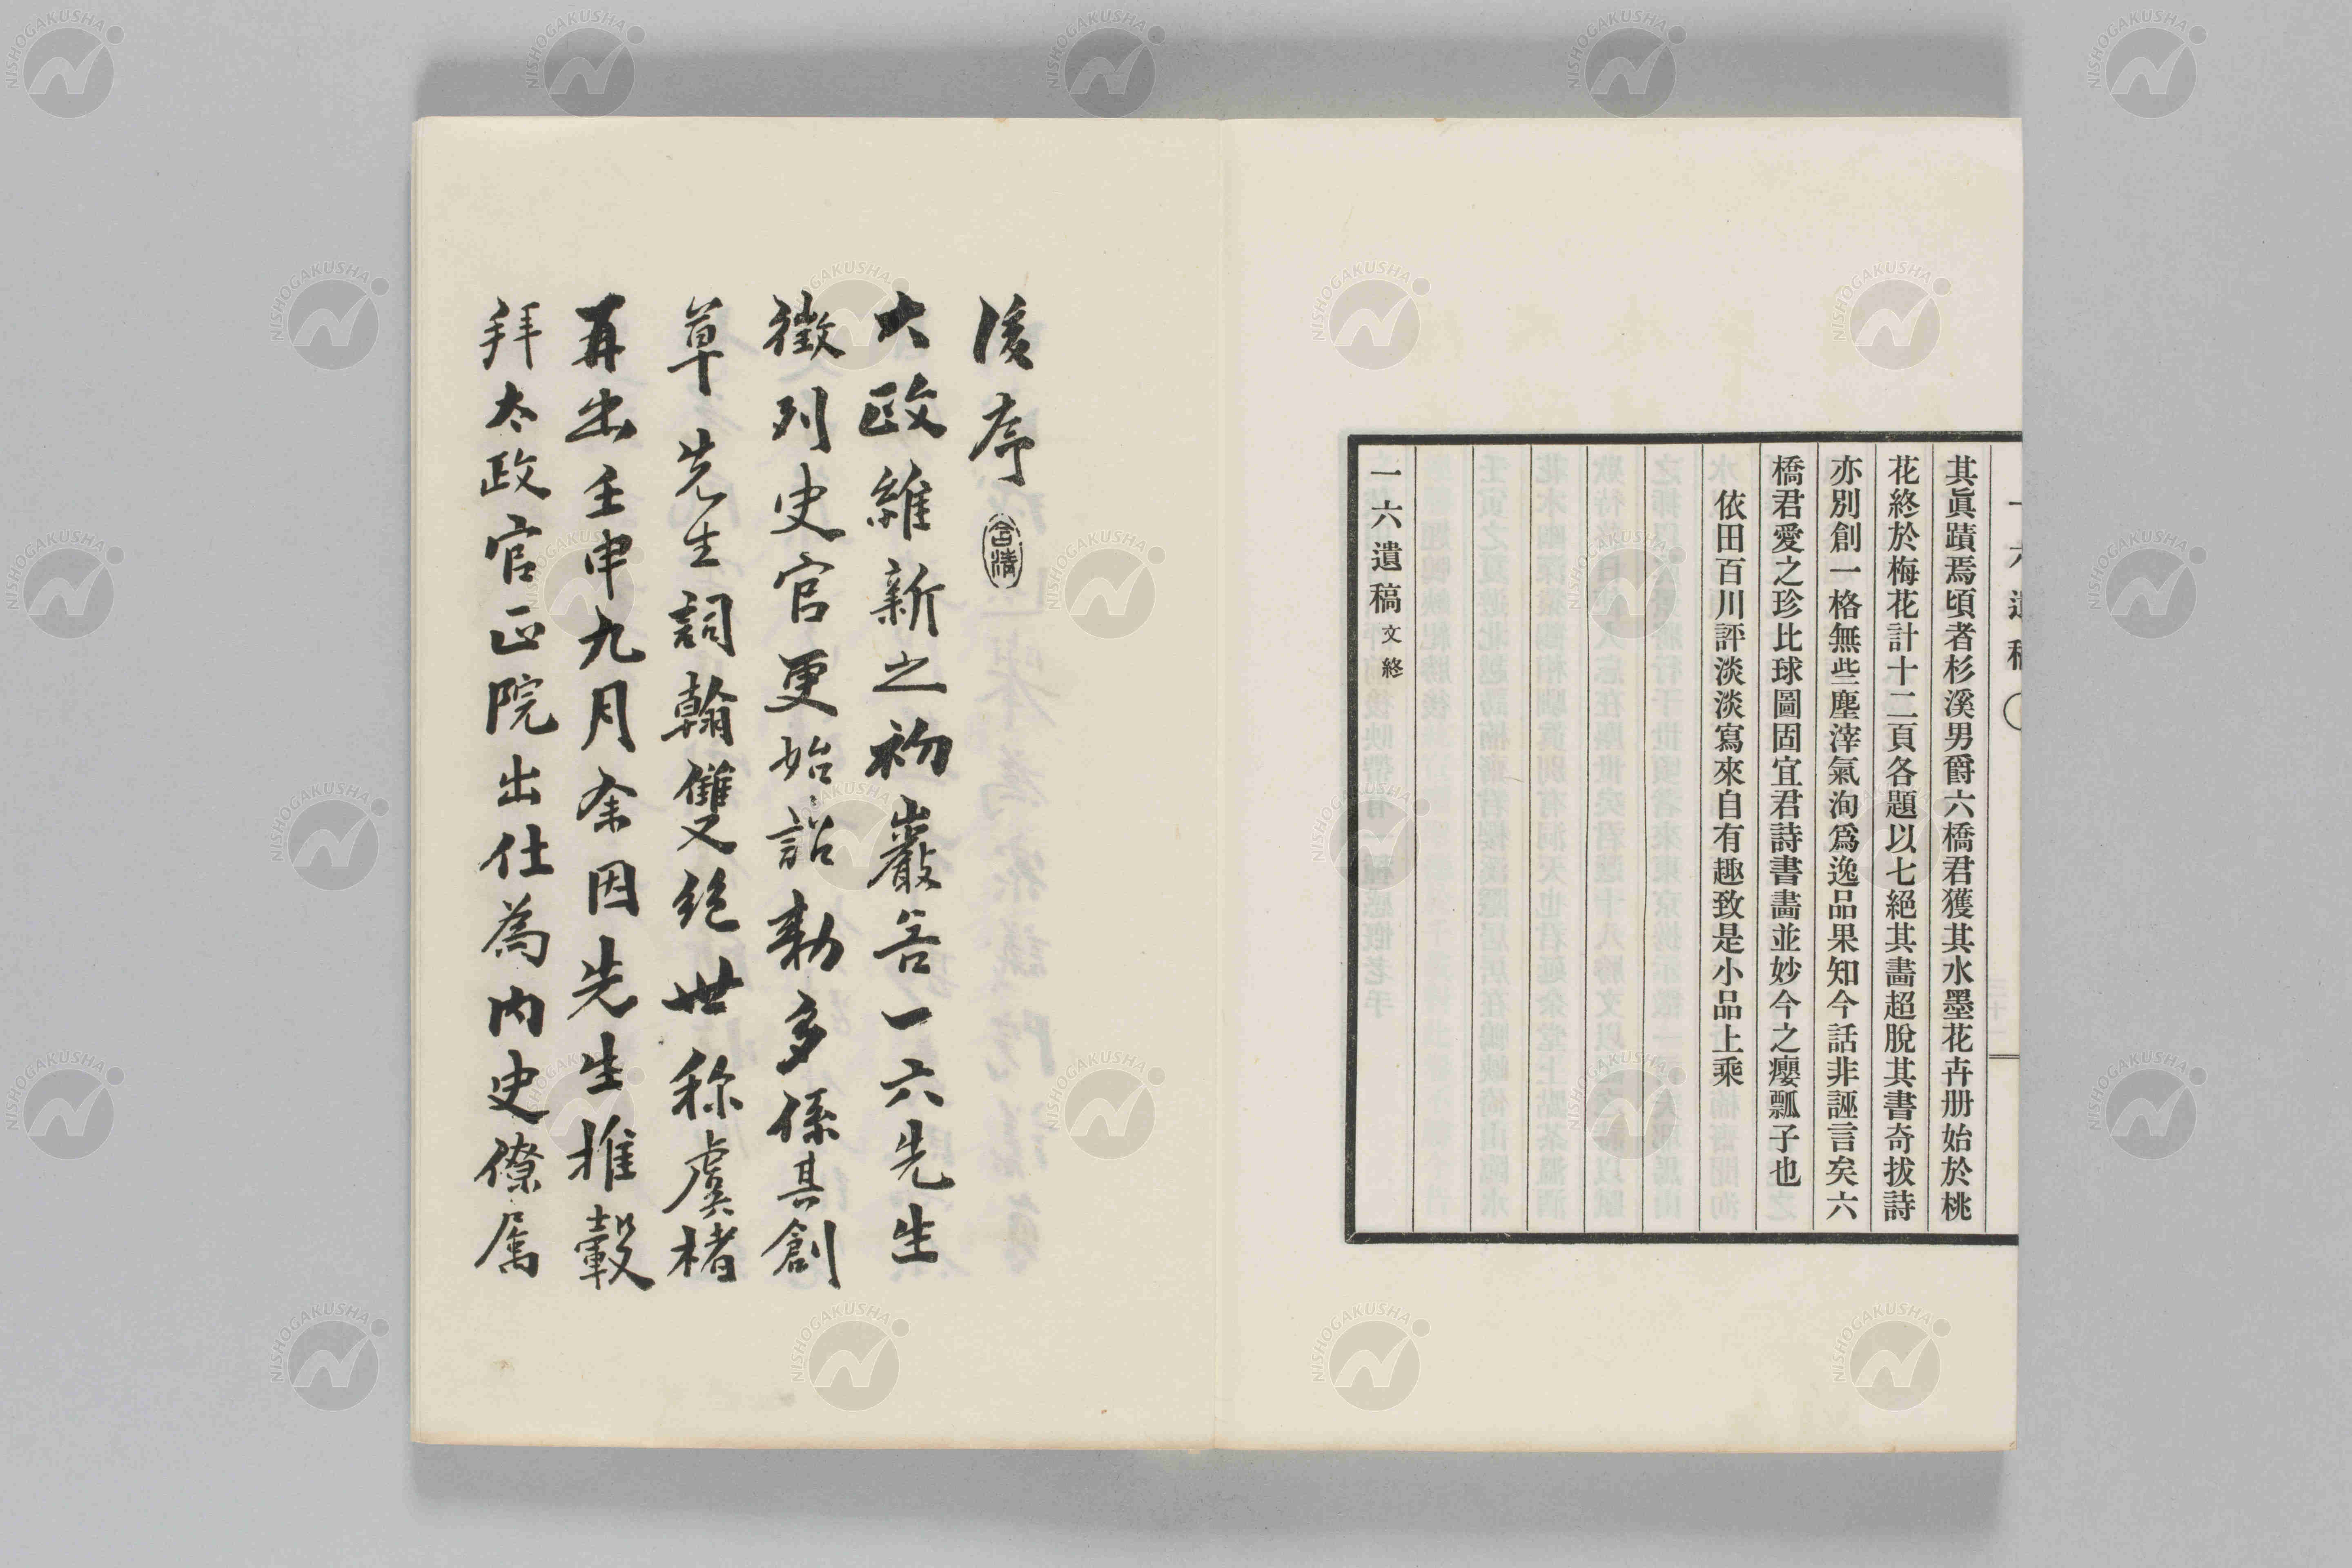 一六遺稿
其眞蹟焉頃者杉溪男爵六橋君獲其水墨花卉册始於桃
花終於梅花計十二頁各題以七絕其畵超脫其書奇拔詩
亦別創一格無些塵滓氣洵爲逸品果知今話非誣言矣六
橋君愛之珍比球圖固宜君詩書畵並妙今之癭瓢子也
依田百川評淡淡寫來自有趣致是小品上乘
一六遺稿文終
後序
大政維新之初巖谷一六先生
徵列史官更始詔勅多係其創
草先生詞翰雙絕世称虞褚
再出壬申九月余因先生推轂
拜太政官正院出仕為內史僚屬
NISHOGAKUSHA